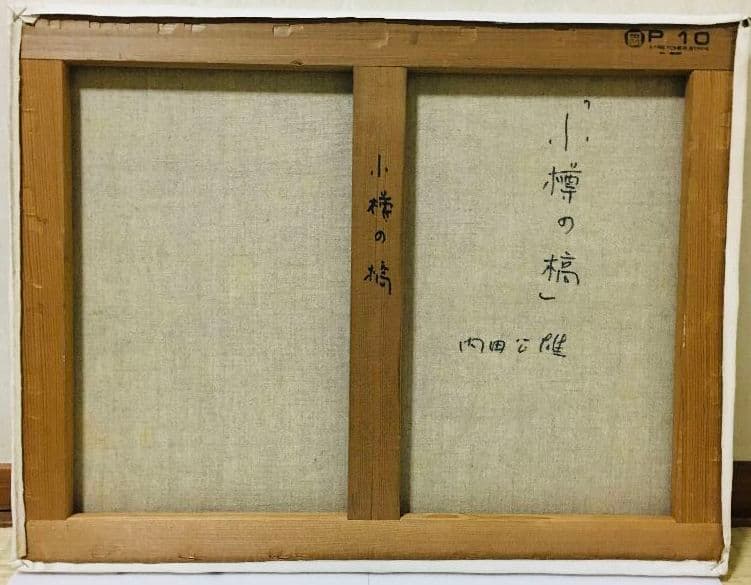 P 10
「小樽の橋」
内田公雄
小樽の橋